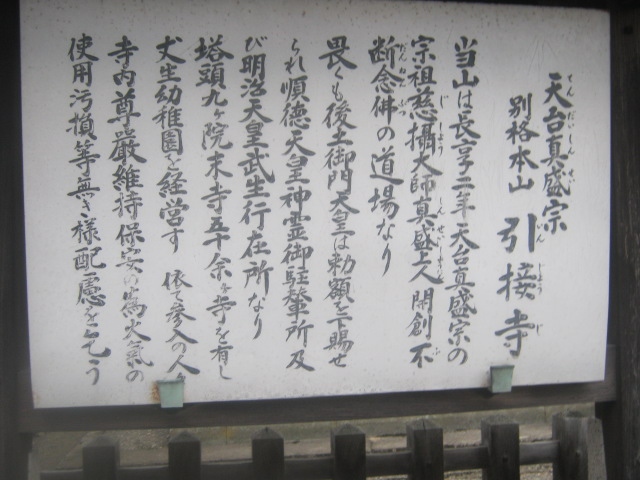 天台真盛宗
別格本山 引接寺
当山は長享二年天台真盛宗の
宗祖慈攝大師真盛上人開創不
断念佛の道場なり
畏くも後土御門天皇は勅額を下賜せ
られ順徳天皇神霊御駐輦所及
び明治天皇武生行在所なり
塔頭九ヶ院末寺五十余ヶ寺を有し
丈生幼稚園を経営す 依て参入の人
寺内尊厳維持保安の為火氣の
使用汚損等無き様配慮を乞う